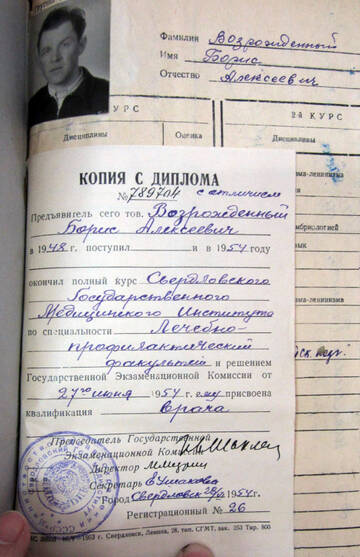 Фамилия Возрожденный
Имя Борис
Отчество Алексеевич
КУРС
2-й КУРС
Дисциплины
Оценка
Дисциплины
КОПИЯ С ДИПЛОМА
№ 789704 с отличием
Предъявитель сего тов. Возрожденный
Борис Алексеевич
в 1948 г. поступил и в 1954 году
окончил полный курс Свердловского
Государственного
Медицинского Института
по специальности Лечебно-
профилактический
факультет и решением
Государственной Экзаменационной Комиссии от
27го июня 1954 г. ему присвоена
квалификация Врача
Председатель Государственной
Экзаменационной Комиссии
Директор
Е Ушакова
Город Свердловск 1954 г.
Регистрационный № 26
1953 г. Свердловск, Ленина, 28, тип. СГМТ, зак. 253 Тир. 800